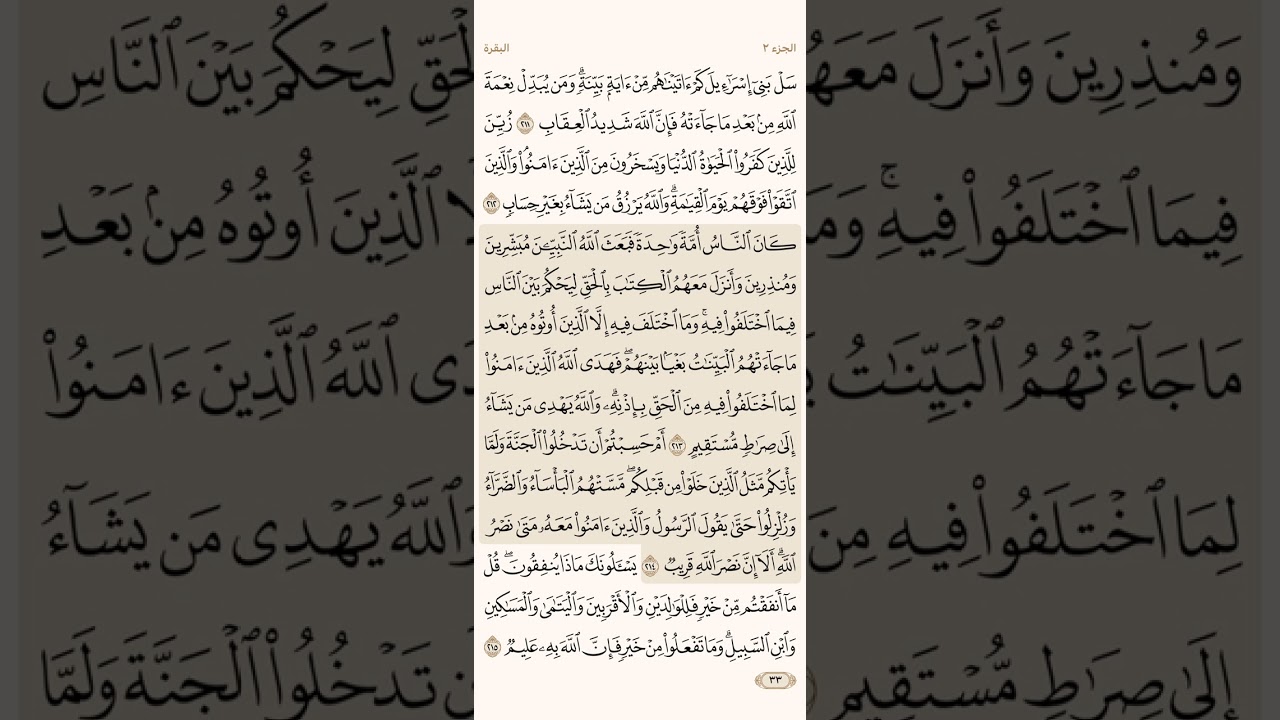 الجزء ٢
البقرة
سَلْ بَنِىٓ إِسْرَٰٓءِيلَ كَمْ ءَاتَيْنَٰهُم مِّنْ ءَايَةٍۭ بَيِّنَةٍۗ وَمَن يُبَدِّلْ نِعْمَةَ
ٱللَّهِ مِنۢ بَعْدِ مَا جَآءَتْهُ فَإِنَّ ٱللَّهَ شَدِيدُ ٱلْعِقَابِ ٢١١ زُيِّنَ
لِلَّذِينَ كَفَرُوا۟ ٱلْحَيَوٰةُ ٱلدُّنْيَا وَيَسْخَرُونَ مِنَ ٱلَّذِينَ ءَامَنُوا۟ۘ وَٱلَّذِينَ
ٱتَّقَوْا۟ فَوْقَهُمْ يَوْمَ ٱلْقِيَٰمَةِۗ وَٱللَّهُ يَرْزُقُ مَن يَشَآءُ بِغَيْرِ حِسَابٍ ٢١٢
كَانَ ٱلنَّاسُ أُمَّةً وَٰحِدَةً فَبَعَثَ ٱللَّهُ ٱلنَّبِيِّـۧنَ مُبَشِّرِينَ
وَمُنذِرِينَ وَأَنزَلَ مَعَهُمُ ٱلْكِتَٰبَ بِٱلْحَقِّ لِيَحْكُمَ بَيْنَ ٱلنَّاسِ
فِيمَا ٱخْتَلَفُوا۟ فِيهِۚ وَمَا ٱخْتَلَفَ فِيهِ إِلَّا ٱلَّذِينَ أُوتُوهُ مِنۢ بَعْدِ
مَا جَآءَتْهُمُ ٱلْبَيِّنَٰتُ بَغْيًۢا بَيْنَهُمْۖ فَهَدَى ٱللَّهُ ٱلَّذِينَ ءَامَنُوا۟
لِمَا ٱخْتَلَفُوا۟ فِيهِ مِنَ ٱلْحَقِّ بِإِذْنِهِۦۗ وَٱللَّهُ يَهْدِى مَن يَشَآءُ
إِلَىٰ صِرَٰطٍ مُّسْتَقِيمٍ ٢١٣ أَمْ حَسِبْتُمْ أَن تَدْخُلُوا۟ ٱلْجَنَّةَ وَلَمَّا
يَأْتِكُم مَّثَلُ ٱلَّذِينَ خَلَوْا۟ مِن قَبْلِكُمۖ مَّسَّتْهُمُ ٱلْبَأْسَآءُ وَٱلضَّرَّآءُ
وَزُلْزِلُوا۟ حَتَّىٰ يَقُولَ ٱلرَّسُولُ وَٱلَّذِينَ ءَامَنُوا۟ مَعَهُۥ مَتَىٰ نَصْرُ
ٱللَّهِۗ أَلَآ إِنَّ نَصْرَ ٱللَّهِ قَرِيبٌ ٢١٤ يَسْـَٔلُونَكَ مَاذَا يُنفِقُونَۖ قُلْ
مَآ أَنفَقْتُم مِّنْ خَيْرٍ فَلِلْوَٰلِدَيْنِ وَٱلْأَقْرَبِينَ وَٱلْيَتَٰمَىٰ وَٱلْمَسَٰكِينِ
وَٱبْنِ ٱلسَّبِيلِۗ وَمَا تَفْعَلُوا۟ مِنْ خَيْرٍ فَإِنَّ ٱللَّهَ بِهِۦ عَلِيمٌ ٢١٥
٣٣